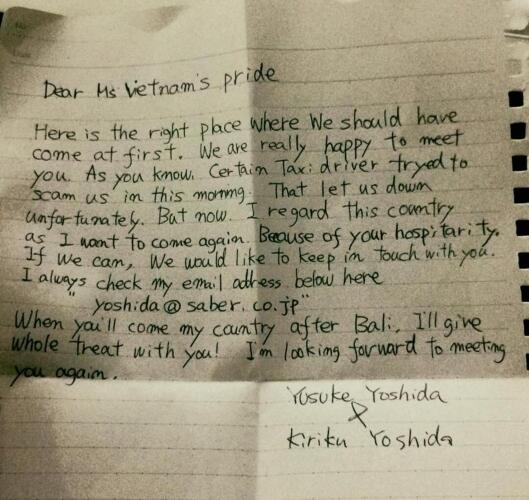 Dear Ms Vietnam's pride
Here is the right place where We should have
come at first. We are really happy to meet
you. As you know. Certain Taxi driver tryed to
scam us in this morning. That let us down
unfortunately. But now. I regard this country
as I want to come again. Because of your hospitarity.
If we can, We would like to keep in touch with you.
I always check my email adress below here
"yoshida@saber.co.jp"
When you'll come my country after Bali, I'll give
whole treat with you! I'm looking forward to meeting
you again.
Yusuke Yoshida
&
Kiriku Yoshida